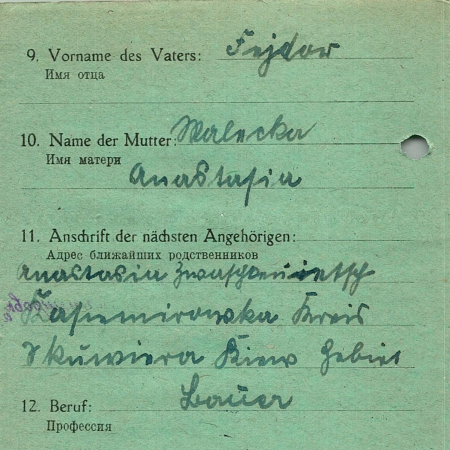 9. Vorname des Vaters: Fejdor
Имя отца
10. Name der Mutter: Malecka
Имя матери
Anastasia
11. Anschrift der nächsten Angehörigen:
Адрес ближайших родственников
Anastasia
Kasiemirowka Kreis
Skuwiera Kiew Gebiet
12. Beruf: Bauer
Профессия